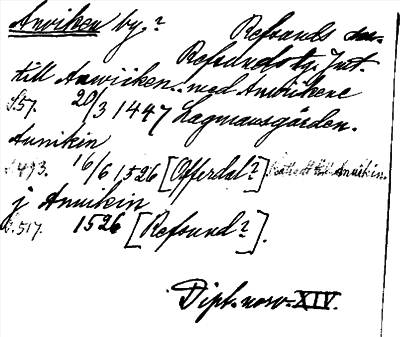 Anviken by.? Refsunds sn.
Refsunds tg. Jmt.
till Anwiiken.. med Anwikene
S.57. 20/3 1447 Lagmansgården.
Annikin
S.493. 16/6 1526 [Offerdal?]
j Anuikin
S.517. 1526 [Refsund?].
Dipl. norv. XIV.